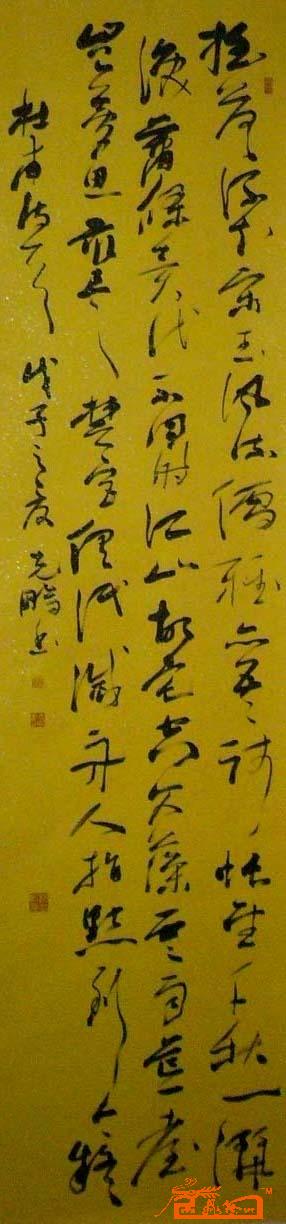 摇落深知宋玉風流儒雅亦吾師悵望千秋一灑
淚蕭條異代不同時江山故宅空文藻雲雨荒臺
豈夢思最是楚宫俱泯滅舟人指點到今疑
杜甫詩一首 戊子之夏 鵬書